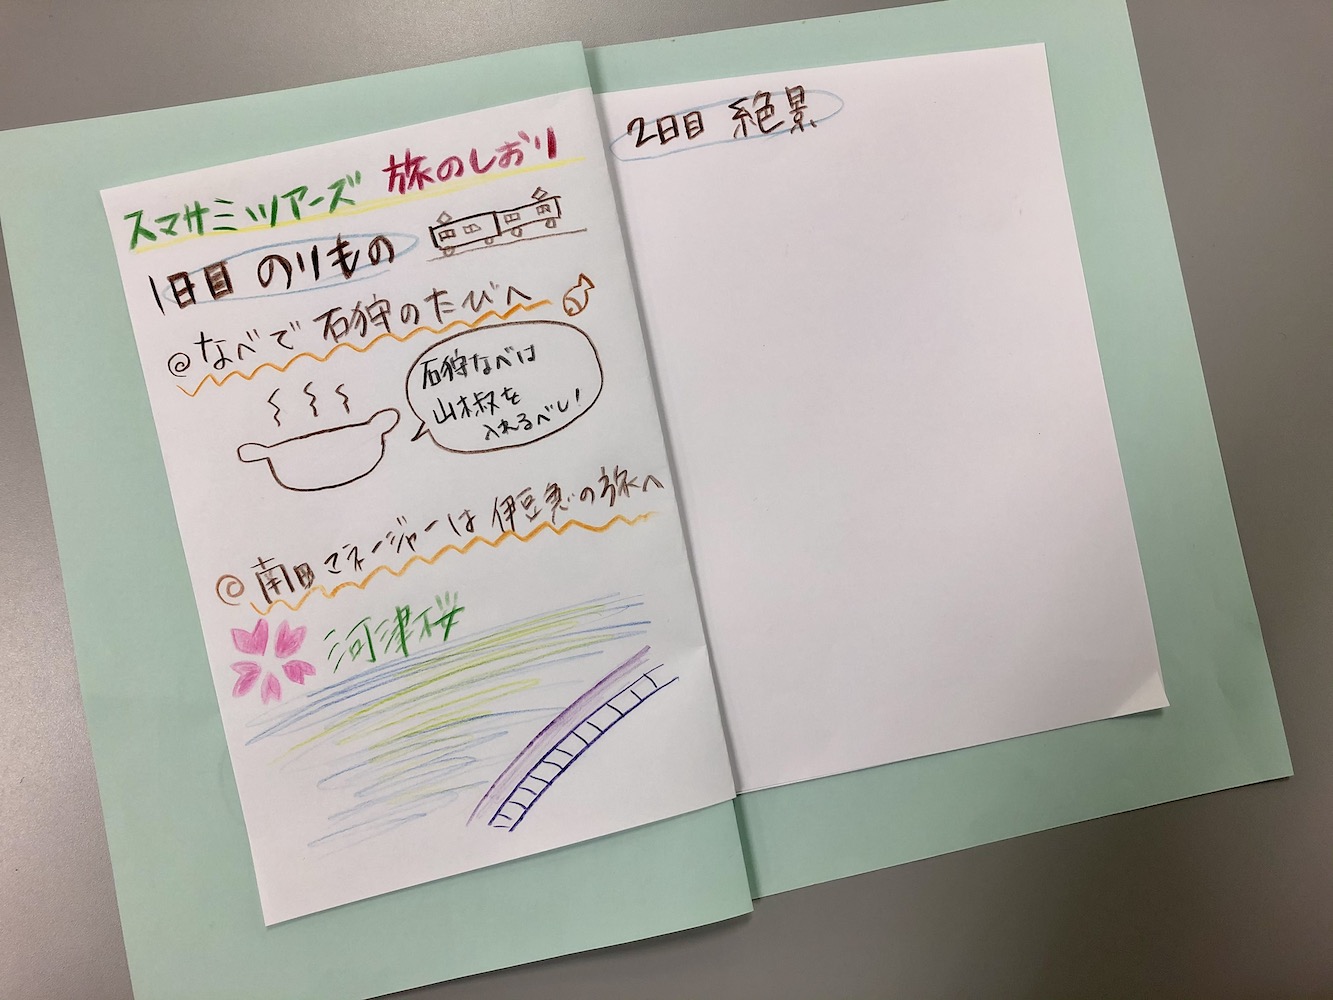 スマサミツアーズ 旅のしおり
1日目 のりもの
@なべで 石狩のたびへ
石狩なべは
山椒を
入れるべし!
@南田マネージャーは 伊豆急の旅へ
河津桜
2日目 絶景